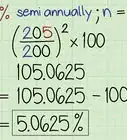 % semi annually; n =
(205/200)² × 100
105.0625
= 105.0625 - 100
= 5.0625%